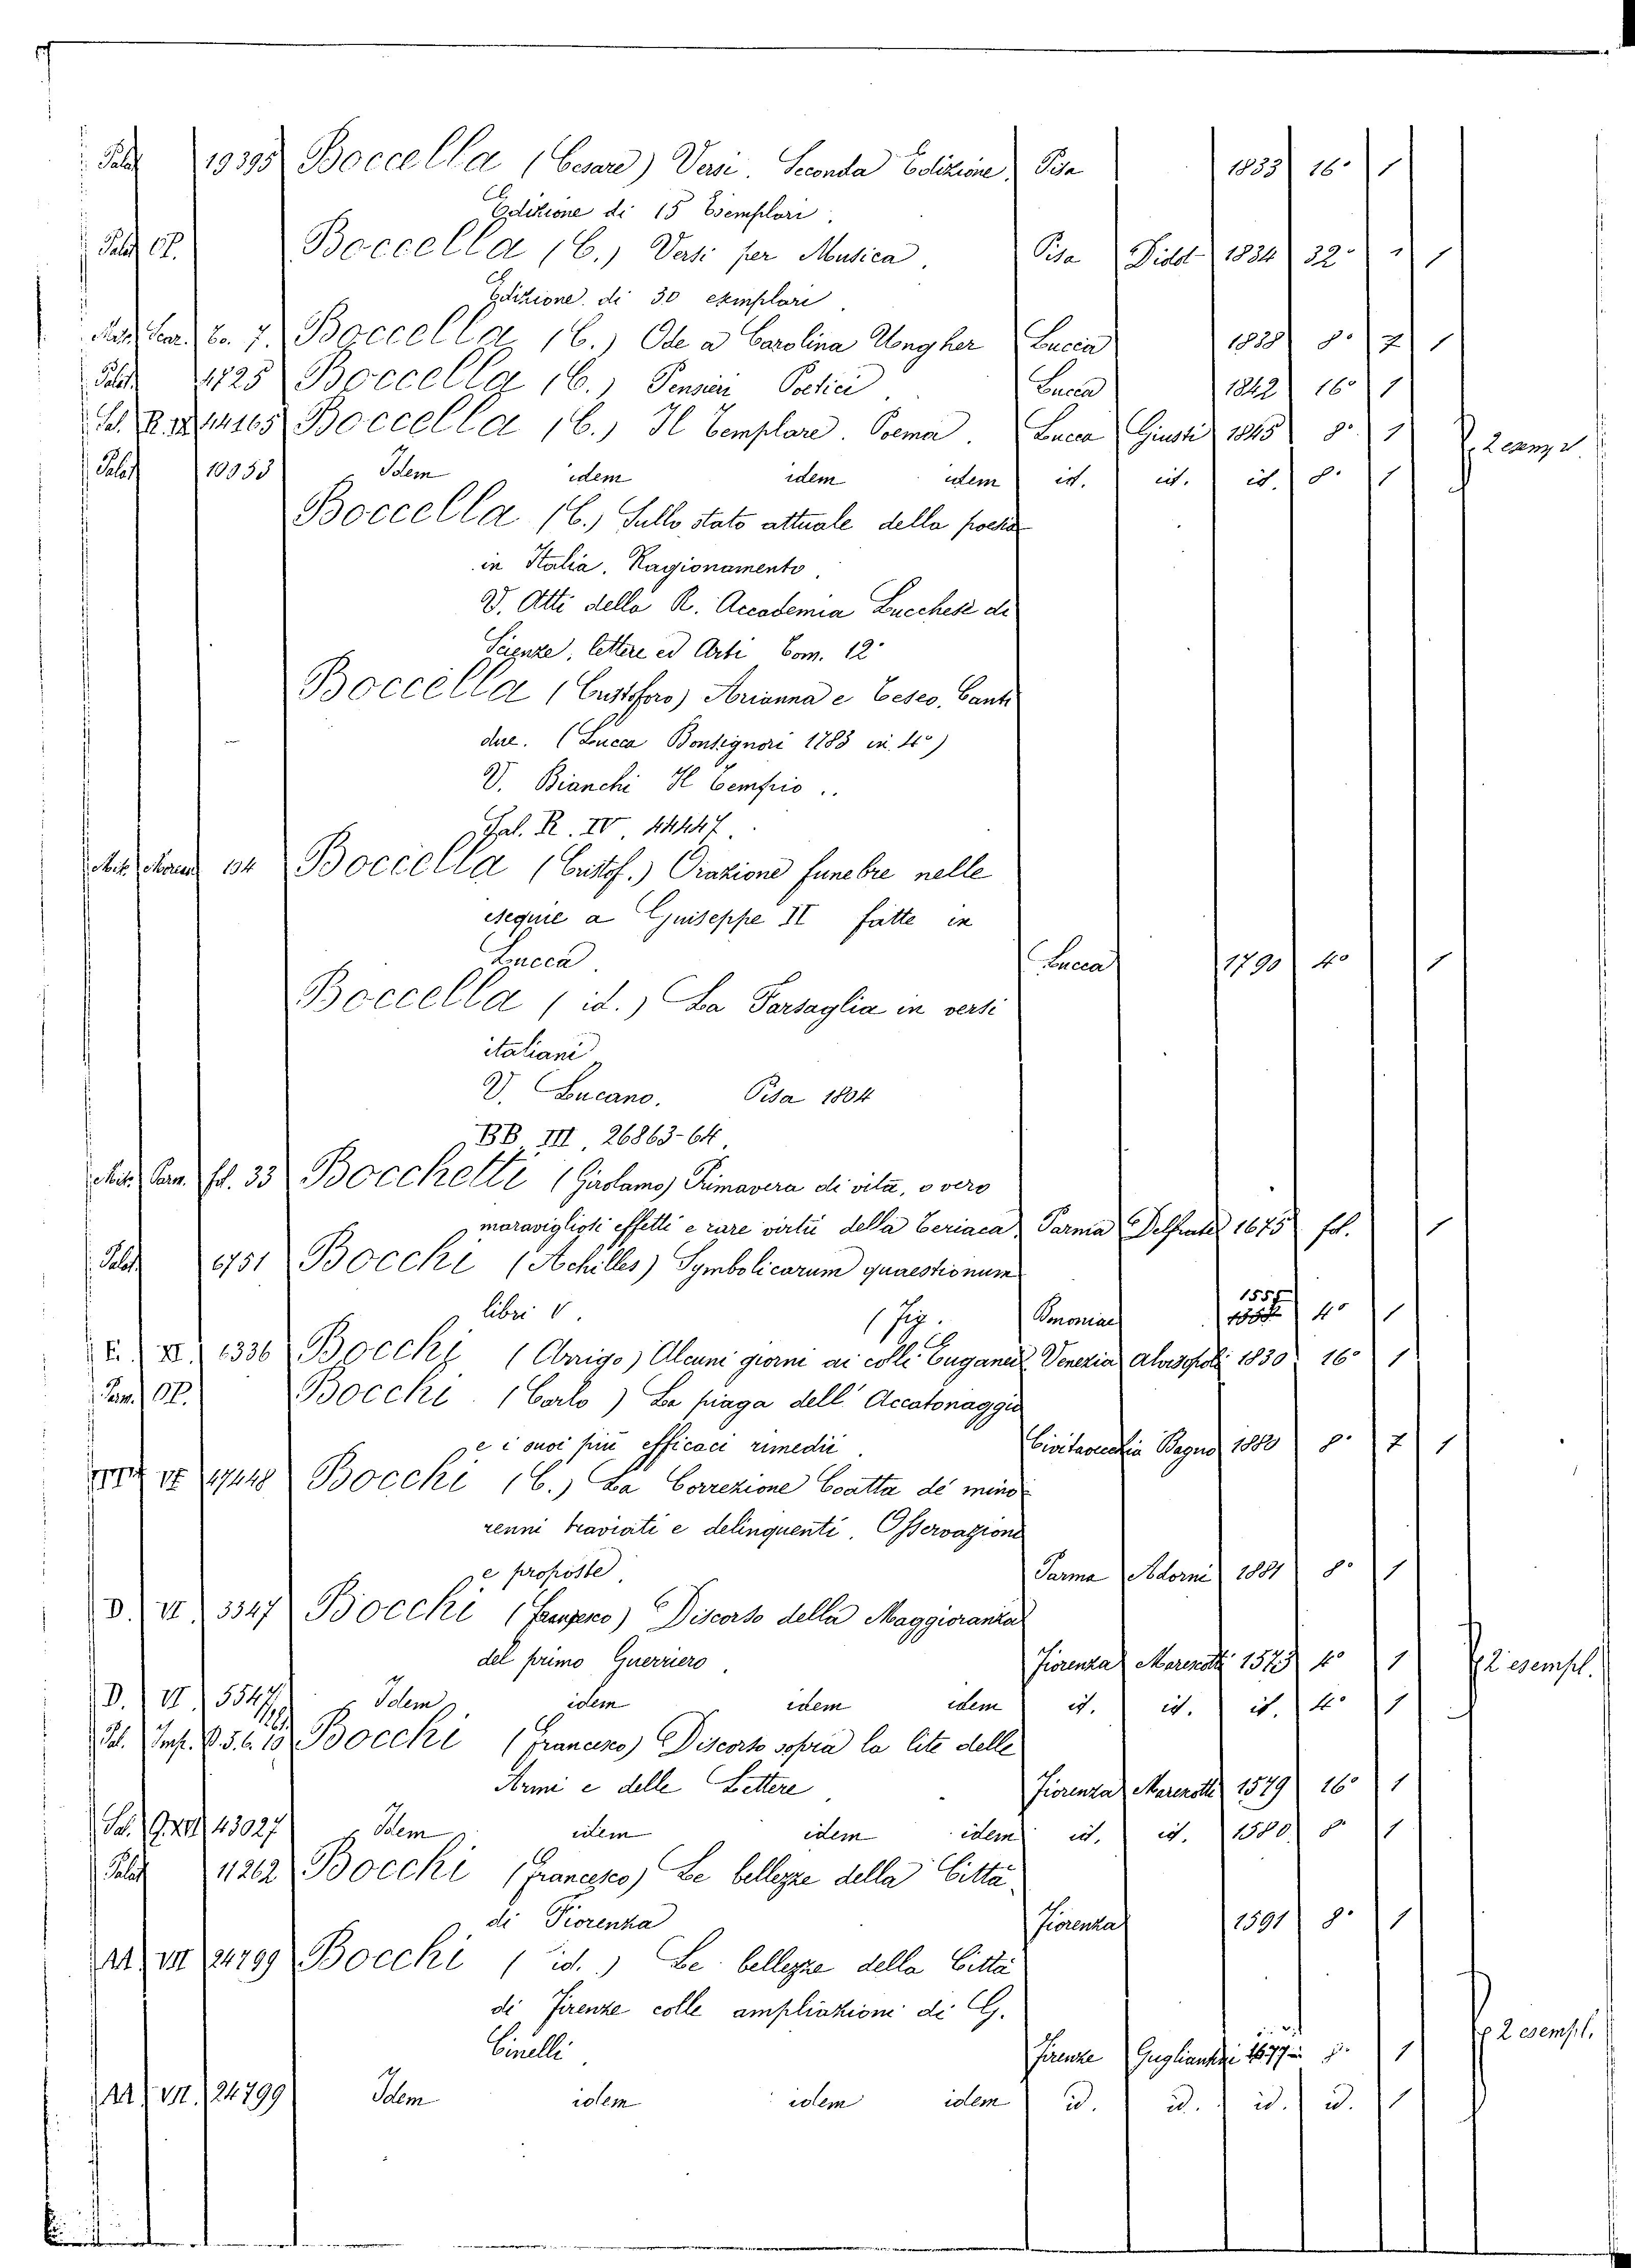 Palat 19395 Boccella (Cesare) Versi. Seconda Edizione. Pisa 1833 16° 1
Edizione di 15 Esemplari.
Palat Boccella (C.) Versi per Musica. Pisa Didot 1834 32° 1
Edizione di 30 exemplari
Boccella (C.) Ode a Carolina Ungher Lucca 1838 8° 1
Palat Boccella (C.) Pensieri Poetici Lucca 1842 16° 1
Boccella (C.) Il Templare. Poema. Lucca Giusti 1845 8° 1
Palat 10953 Idem idem idem idem id. id. id. 8° 1
Boccella (C.) Sullo stato attuale della poesia
in Italia. Ragionamento.
V. Atti della R. Accademia Lucchese di
Scienze, lettere ed Arti Tom. 12°
Boccella (Cristoforo) Arianna e Teseo, Canti
due. (Lucca Bonsignori 1783 in 4°)
V. Bianchi Il Tempio..
Pal. R. IV. 44447.
134 Boccella (Cristof.) Orazione funebre nelle
esequie a Guiseppe II fatte in
Lucca. Lucca 1790 4° 1
Boccella (id.) La Farsaglia in versi
italiani
V. Lucano. Pisa 1804
BB III, 26863-64
fol. 33 Bocchetti (Girolamo) Primavera di vita, overo
maravigliosi effetti e rare virtù della Teriaca. Parma 1675 fol. 1
Palat 6751 Bocchi (Achilles) Symbolicarum quaestionum
libri V. (Fig. Bononiae 1555 4° 1
E. XI. 6336 Bocchi (Arrigo) Alcuni giorni ai colli Euganei. Venezia Alvisopoli 1830 16° 1
Bocchi (Carlo) La piaga dell' Accatonaggio
e i suoi più efficaci rimedii Civitavecchia Bagno 1880 8° 1
Bocchi (C.) La Correzione Coatta de mino-
renni traviati e delinquenti. Osservazione
e proposte. Parma Adorni 1881 8° 1
D. VI 3347 Bocchi (Francesco) Discorso della Maggioranza
del primo Guerriero. Fiorenza Marescotti 1573 4° 1 2 esempl.
D. VI 5547 Idem idem idem idem id. id. id. 4° 1
Bocchi (Francesco) Discorso sopra la lite delle
Armi e delle Lettere Fiorenza Marescotti 1579 16° 1
43027 Idem idem idem idem id. id. 1580 8° 1
Palat 11262 Bocchi (Francesco) Le bellezze della Città
di Fiorenza Fiorenza 1591 8° 1
AA VII 24799 Bocchi (id.) Le bellezze della Città
di Firenze colle ampliazioni di G.
Cinelli. Firenze Gugliantini 1677 8° 1 2 esempl.
AA VII. 24799 Idem idem idem idem id. id. id. id. 1